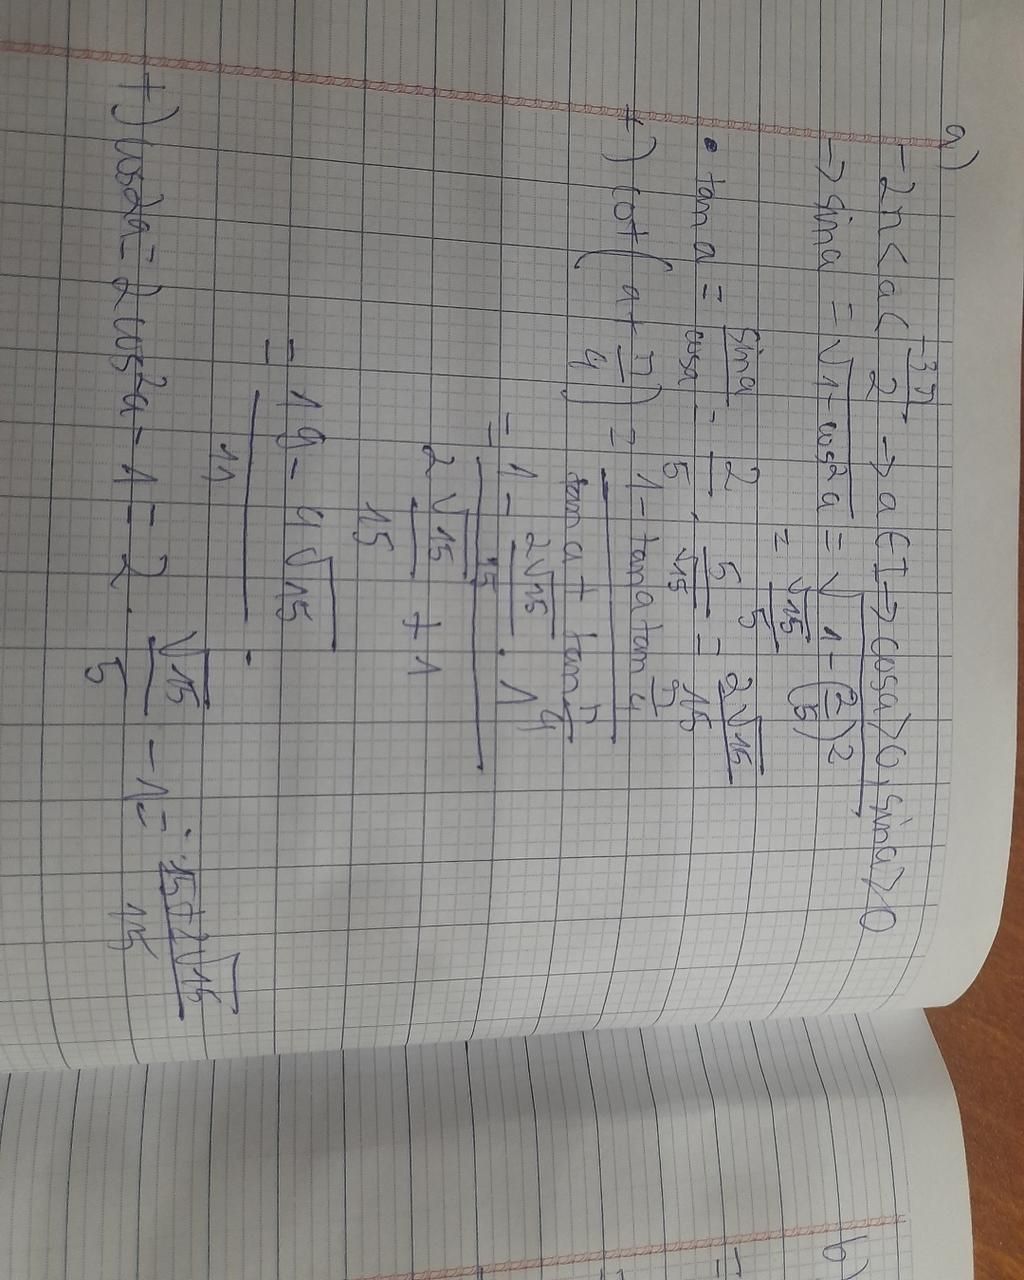 a)
-2π < a < -3π/2 → a ∈ I → cosa > 0, sina > 0
→ sina = √(1 - cos²a) = √(1 - (2/5)²)
= √15/5
• tan a = sina/cosa = 2/5 . 5/√15 = 2√15/15
+) cot(a + π/4) = (1 - tana tan π/4)/(tana + tan π/4)
= (1 - 2√15/15 . 1)/(2√15/15 + 1)
= (19 - 4√15)/11 .
+) cos2a = 2cos²a - 1 = 2 . √15/5 - 1 = (-15 + 2√15)/15
b)